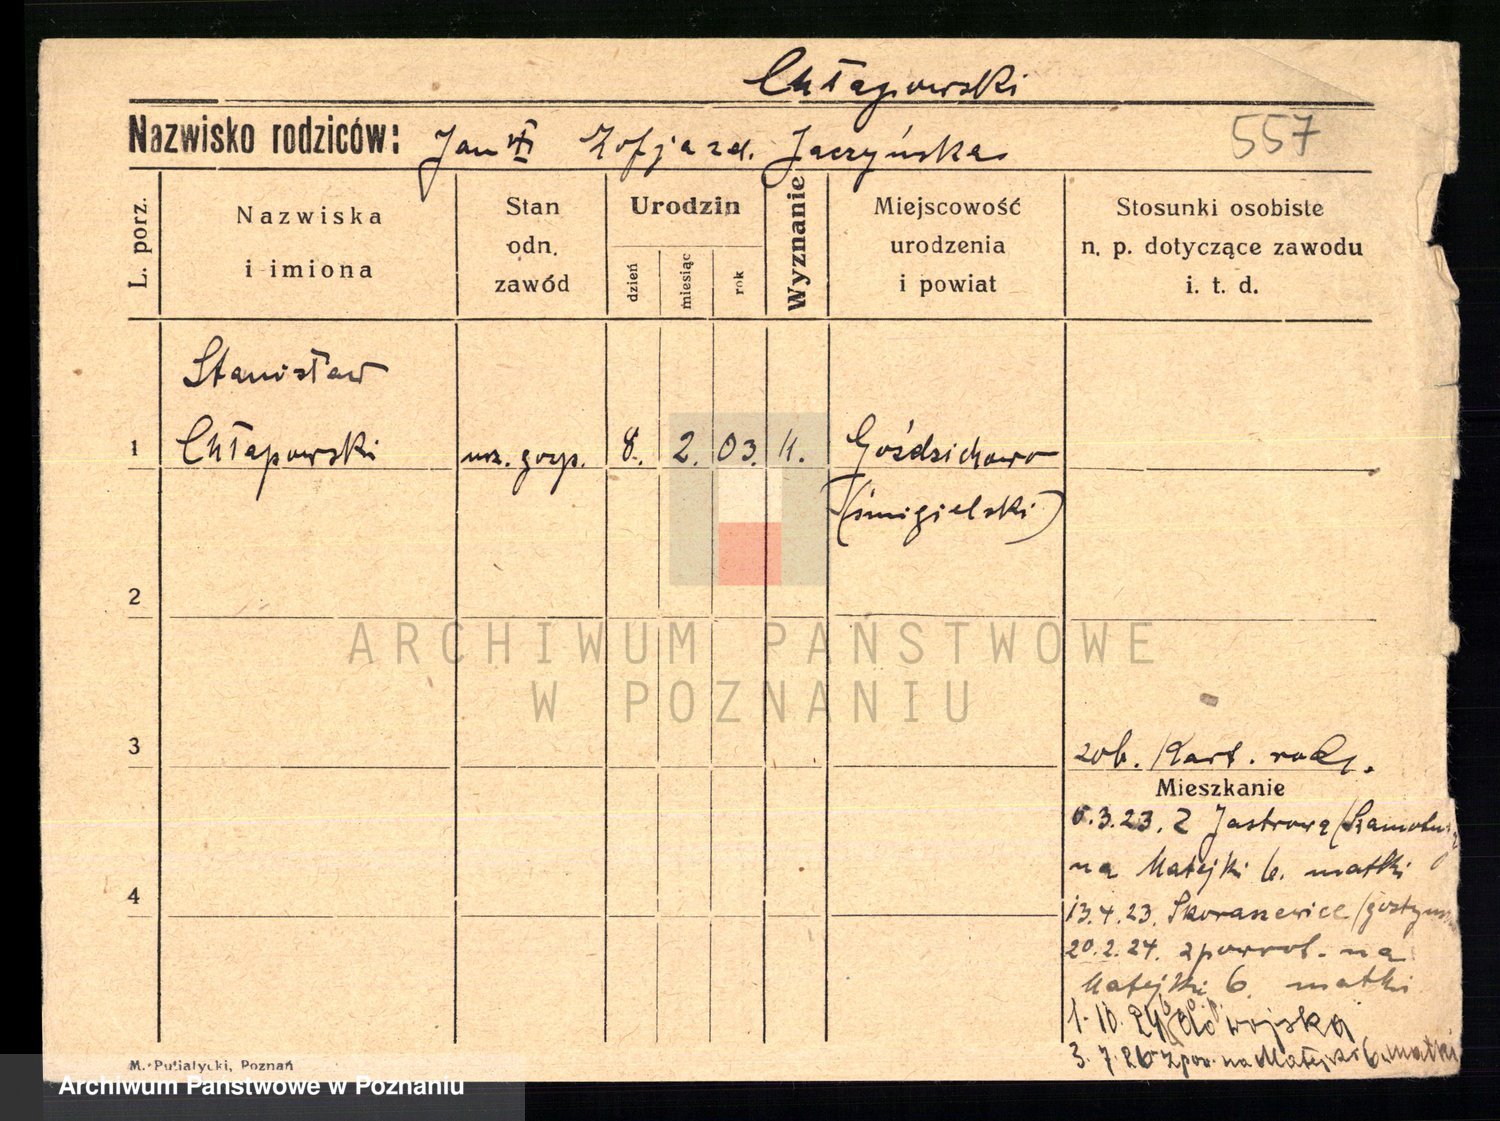 Chłapowski
Nazwisko rodziców: Jan Zofja zd. Jaczyńska
557
L. porz.
Nazwiska
i imiona
Stan
odn.
zawód
Urodzin
dzień
miesiąc
rok
Wyznanie
Miejscowość
urodzenia
i powiat
Stosunki osobiste
n. p. dotyczące zawodu
i. t. d.
Stanisław
1 Chłapowski urz. gosp. 8. 2. 03. k. Goździchowo
(śmigielski)
2
ARCHIWUM PAŃSTWOWE
W POZNANIU
3
zob. Kart. rodz.
Mieszkanie
6.3.23. z Jastrowa (Szamotuł
na Matejki 6. matki
4
13.4.23. Skoraszewice (gostyńs
20.2.24. z powrot. na
Matejki 6. matki
1.10.24 do wojska
3.7.26 z pow. na Matejki 6. matki
M. Putiatycki, Poznań
Archiwum Państwowe w Poznaniu